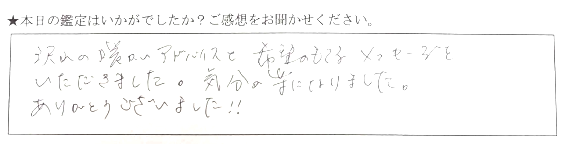 ★本日の鑑定はいかがでしたか？ご感想をお聞かせください。
沢山の暖かいアドバイスと希望のもてるメッセージを
いただきました。気分が楽になりました。
ありがとうございました!!